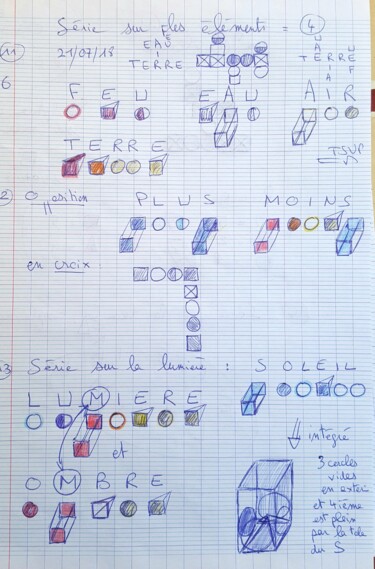 11 Série sur les éléments = 4
21/07/18
6
EAU
TERRE
F
TERRE
F E U   E A U   A I R
T E R R E
TSVP
2 Opposition   P L U S   M O I N S
en croix
3 Série sur la lumière : S O L E I L
L U M I E R E
et
O M B R E
intégré
3 cercles
vides
en
et 4ième
est plein
par la
du S